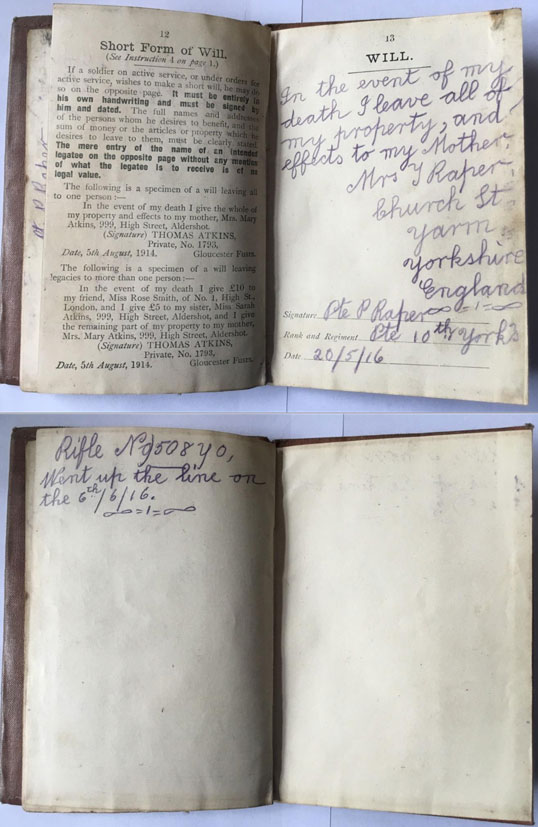 12
Short Form of Will.
(See Instruction 4 on page 1.)
If a soldier on active service, or under orders for
active service, wishes to make a short will, he may do
so on the opposite page. It must be entirely in
his own handwriting and must be signed by
him and dated. The full names and addresses
of the persons whom he desires to benefit, and the
sum of money or the articles or property which he
desires to leave to them, must be clearly stated.
The mere entry of the name of an intended
legatee on the opposite page without any mention
of what the legatee is to receive is of no
legal value.
The following is a specimen of a will leaving all
to one person:—
In the event of my death I give the whole of
my property and effects to my mother, Mrs. Mary
Atkins, 999, High Street, Aldershot.
(Signature) THOMAS ATKINS,
Private, No. 1793,
Date, 5th August, 1914. Gloucester Fusrs.
The following is a specimen of a will leaving
legacies to more than one person:—
In the event of my death I give £10 to
my friend, Miss Rose Smith, of No. 1, High St.,
London, and I give £5 to my sister, Miss Sarah
Atkins, 999, High Street, Aldershot, and I give
the remaining part of my property to my mother,
Mrs. Mary Atkins, 999, High Street, Aldershot.
(Signature) THOMAS ATKINS,
Private, No. 1793,
Date, 5th August, 1914. Gloucester Fusrs.
13
WILL.
In the event of my
death I leave all of
my property, and
effects to my Mother.
Mrs Raper.
Church St
Yarm
Yorkshire
England
Signature Pte P Raper =1=
Rank and Regiment Pte 10th Yorks
Date 20/5/16
P Raper
Rifle
Went up the line on
the 6th/6/16.
=1=